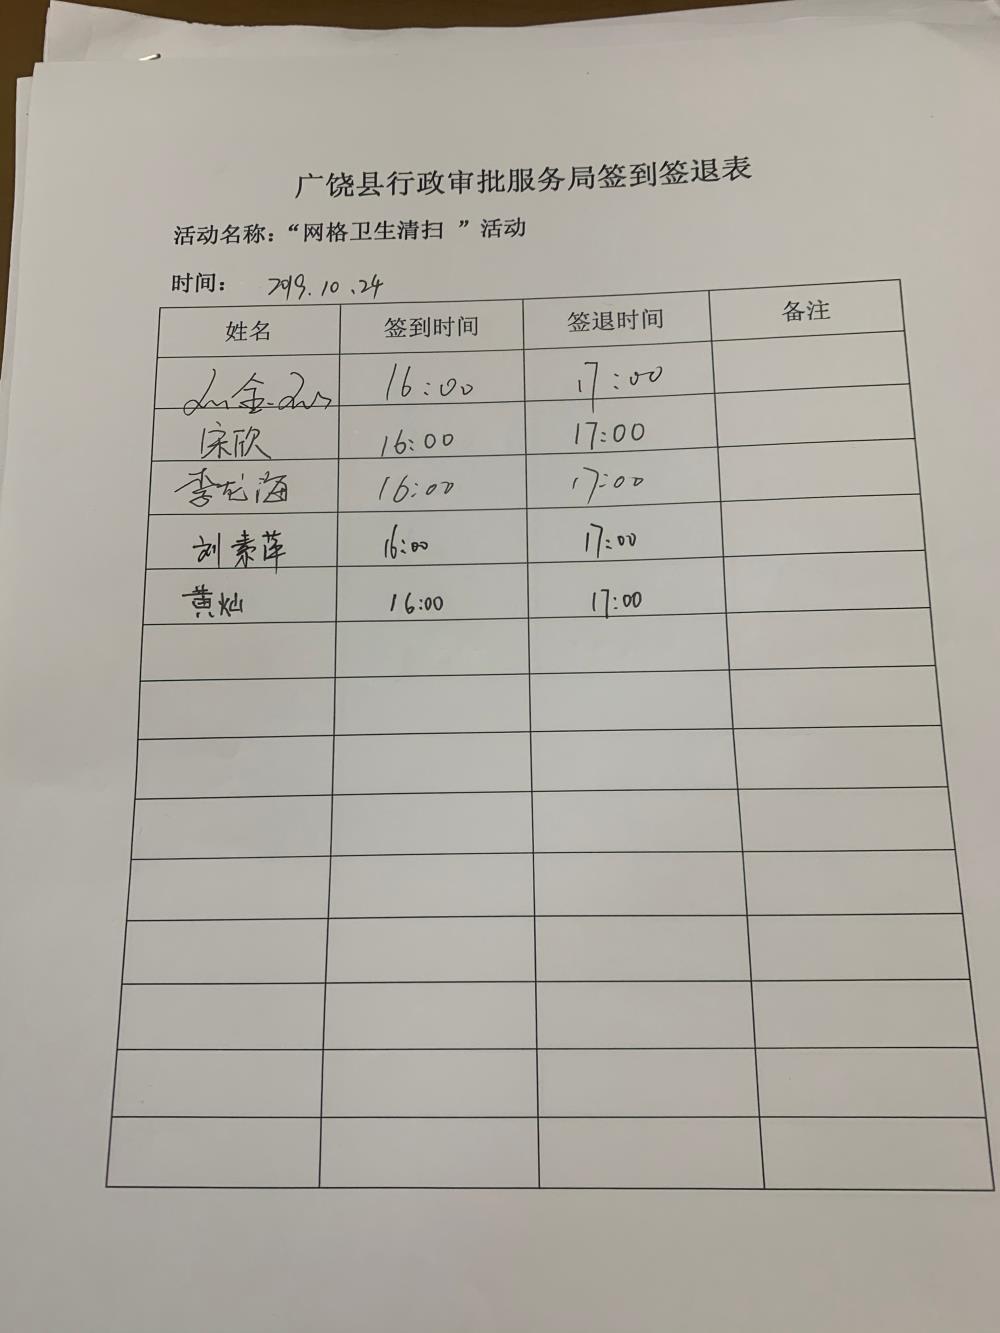 广饶县行政审批服务局签到签退表
活动名称：“网格卫生清扫 ”活动
时间： 2019.10.24
姓名 签到时间 签退时间 备注
16:00 17:00
宋欣 16:00 17:00
李龙海 16:00 17:00
刘素萍 16:00 17:00
黄灿 16:00 17:00